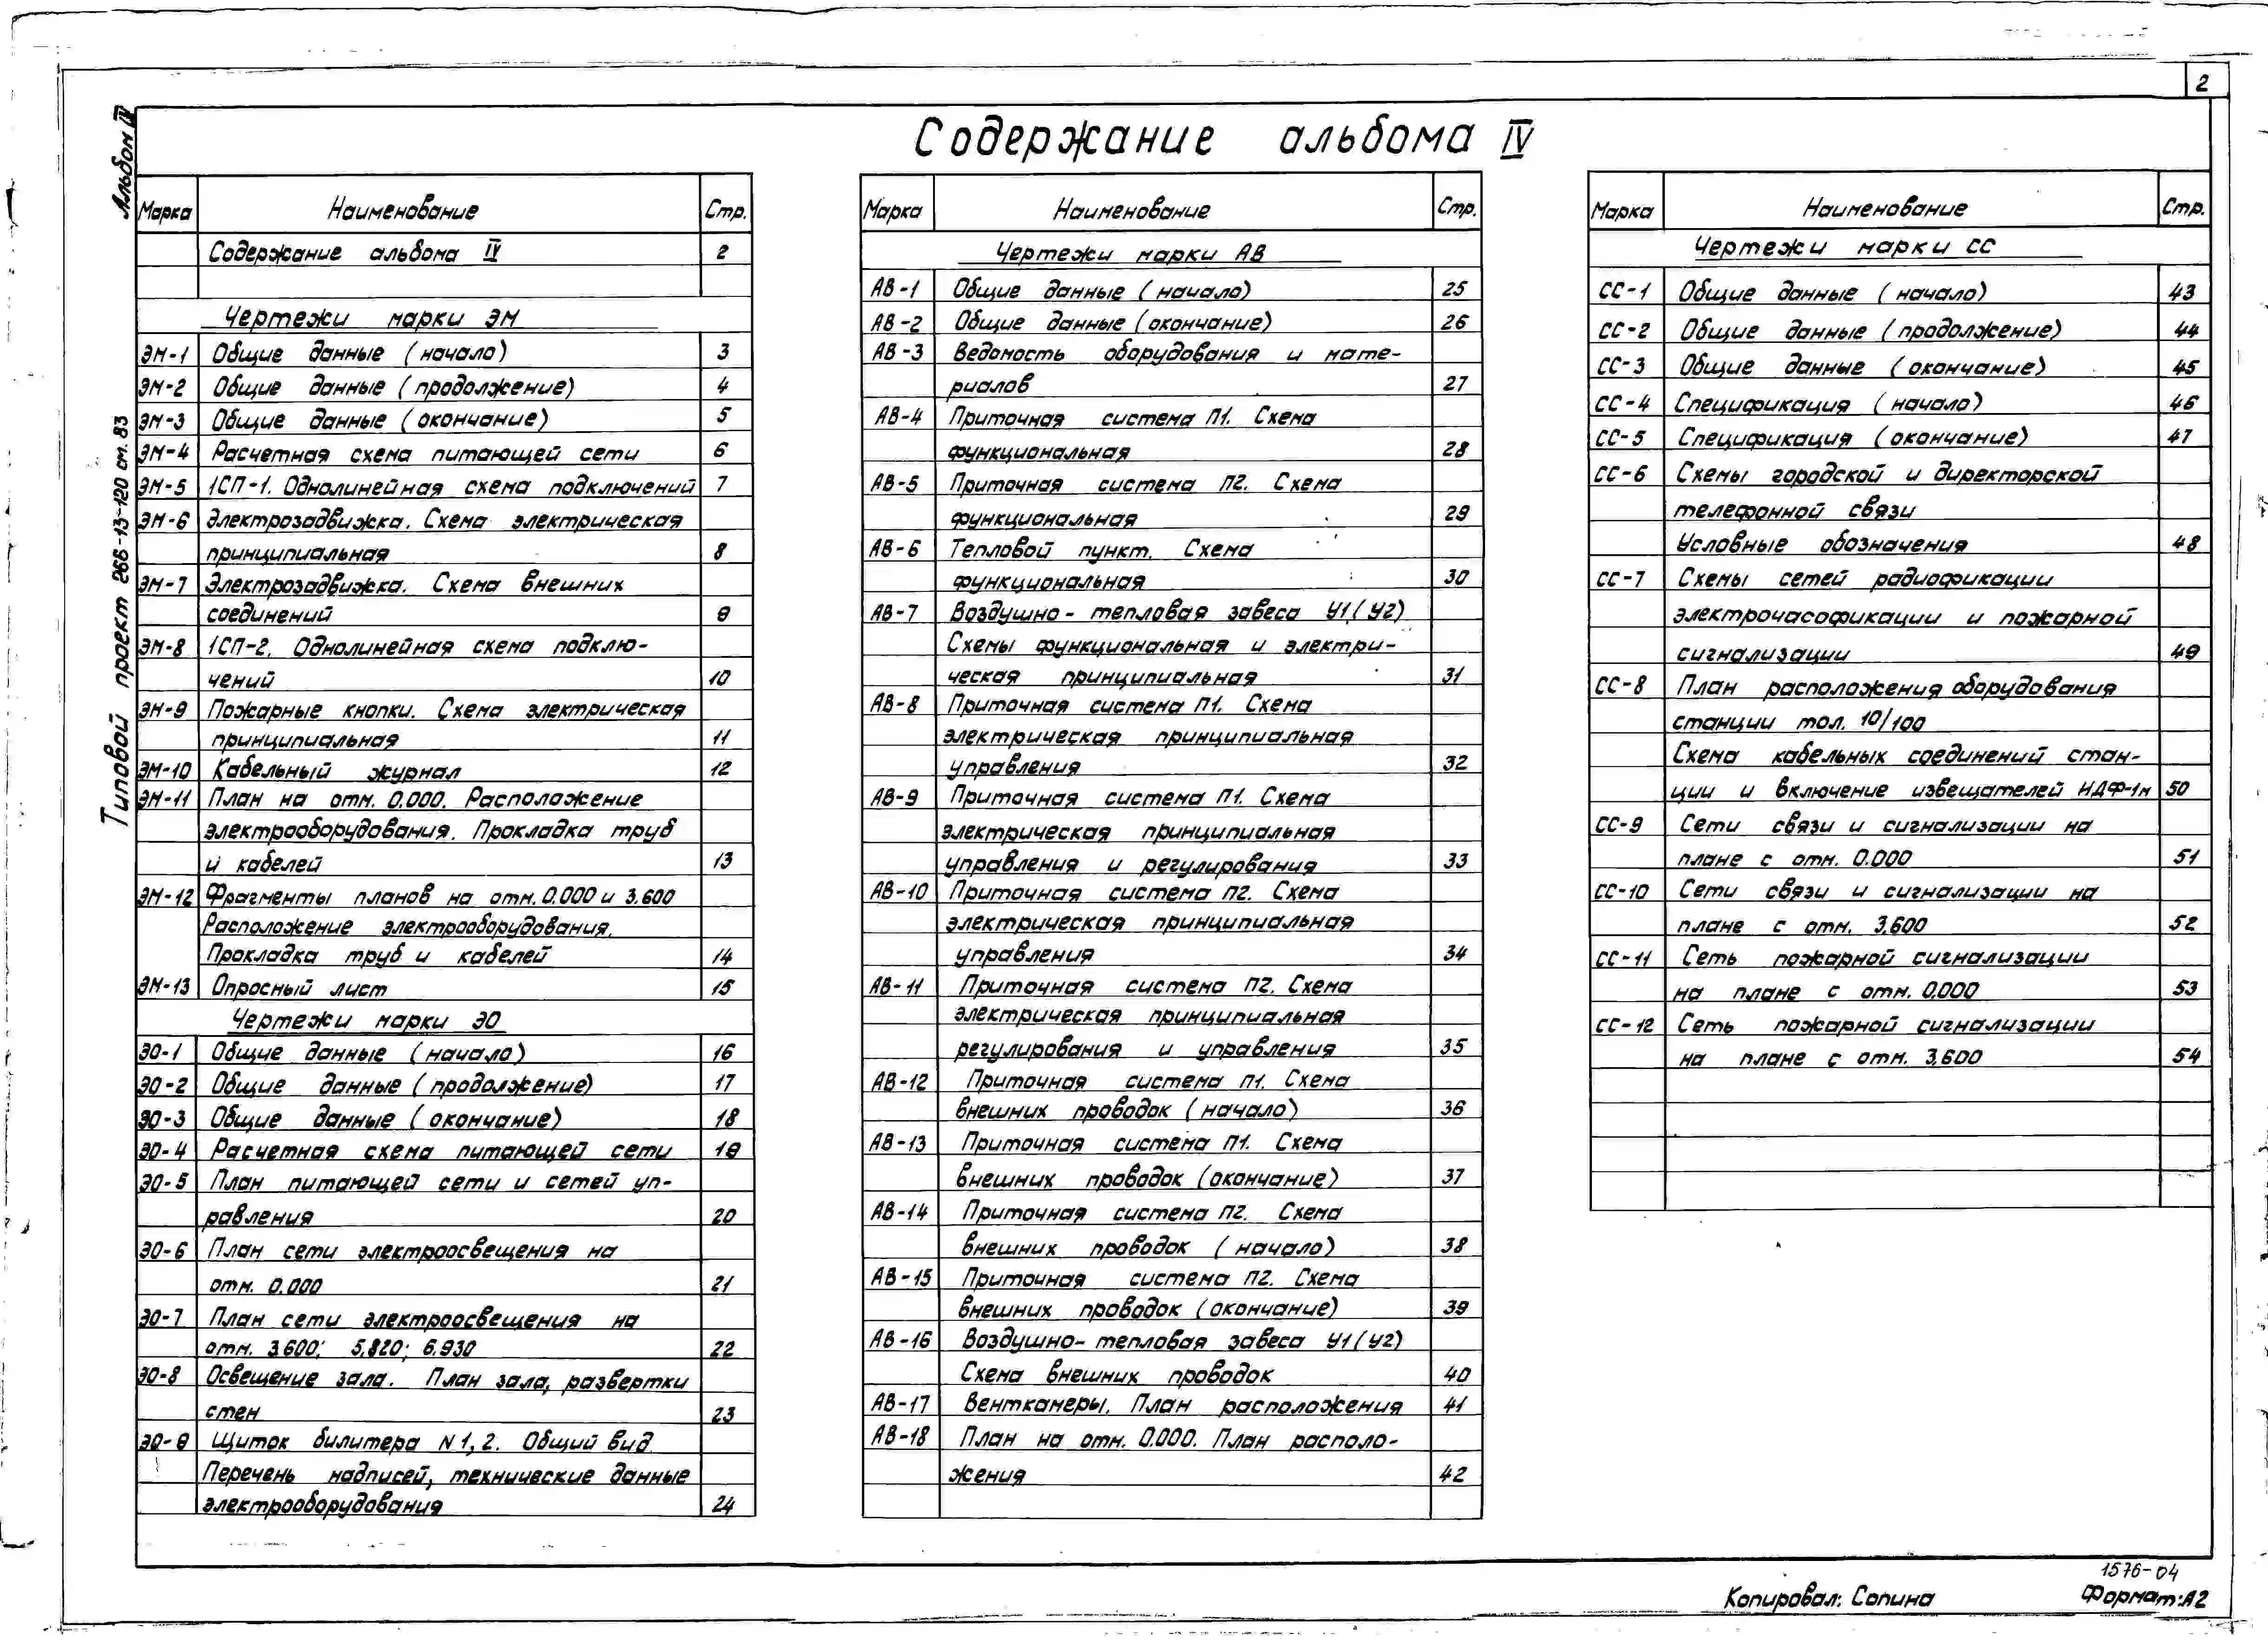 2
Содержание альбома IV
Альбом IV
Типовой проект 266-13-120 см. 83
Марка Наименование Стр.
Содержание альбома IV 2
Чертежи марки ЭМ
ЭМ-1 Общие данные (начало) 3
ЭМ-2 Общие данные (продолжение) 4
ЭМ-3 Общие данные (окончание) 5
ЭМ-4 Расчетная схема питающей сети 6
ЭМ-5 1СП-1. Однолинейная схема подключений 7
ЭМ-6 Электрозадвижка. Схема электрическая
принципиальная 8
ЭМ-7 Электрозадвижка. Схема внешних
соединений 9
ЭМ-8 1СП-2. Однолинейная схема подклю-
чений 10
ЭМ-9 Пожарные кнопки. Схема электрическая
принципиальная 11
ЭМ-10 Кабельный журнал 12
ЭМ-11 План на отм. 0.000. Расположение
электрооборудования. Прокладка труб
и кабелей 13
ЭМ-12 Фрагменты планов на отм. 0.000 и 3.600
Расположение электрооборудования.
Прокладка труб и кабелей 14
ЭМ-13 Опросный лист 15
Чертежи марки ЭО
ЭО-1 Общие данные (начало) 16
ЭО-2 Общие данные (продолжение) 17
ЭО-3 Общие данные (окончание) 18
ЭО-4 Расчетная схема питающей сети 19
ЭО-5 План питающей сети и сетей уп-
равления 20
ЭО-6 План сети электроосвещения на
отм. 0.000 21
ЭО-7 План сети электроосвещения на
отм. 3.600; 5.820; 6.930 22
ЭО-8 Освещение зала. План зала, развертки
стен 23
ЭО-9 Щиток билитера N 1, 2. Общий вид
Перечень надписей, технические данные
электрооборудования 24
Марка Наименование Стр.
Чертежи марки АВ
АВ-1 Общие данные (начало) 25
АВ-2 Общие данные (окончание) 26
АВ-3 Ведомость оборудования и мате-
риалов 27
АВ-4 Приточная система П1. Схема
функциональная 28
АВ-5 Приточная система П2. Схема
функциональная 29
АВ-6 Тепловой пункт. Схема
функциональная 30
АВ-7 Воздушно-тепловая завеса У1 (У2)
Схемы функциональная и электри-
ческая принципиальная 31
АВ-8 Приточная система П1. Схема
электрическая принципиальная
управления 32
АВ-9 Приточная система П1. Схема
электрическая принципиальная
управления и регулирования 33
АВ-10 Приточная система П2. Схема
электрическая принципиальная
управления 34
АВ-11 Приточная система П2. Схема
электрическая принципиальная
регулирования и управления 35
АВ-12 Приточная система П1. Схема
внешних проводок (начало) 36
АВ-13 Приточная система П1. Схема
внешних проводок (окончание) 37
АВ-14 Приточная система П2. Схема
внешних проводок (начало) 38
АВ-15 Приточная система П2. Схема
внешних проводок (окончание) 39
АВ-16 Воздушно-тепловая завеса У1 (У2)
Схема внешних проводок 40
АВ-17 Венткамеры. План расположения 41
АВ-18 План на отм. 0.000. План располо-
жения 42
Марка Наименование Стр.
Чертежи марки СС
СС-1 Общие данные (начало) 43
СС-2 Общие данные (продолжение) 44
СС-3 Общие данные (окончание) 45
СС-4 Спецификация (начало) 46
СС-5 Спецификация (окончание) 47
СС-6 Схемы городской и директорской
телефонной связи
Условные обозначения 48
СС-7 Схемы сетей радиофикации
электрочасофикации и пожарной
сигнализации 49
СС-8 План расположения оборудования
станции тол. 10/100
Схема кабельных соединений стан-
ции и включение извещателей НДФ-1м 50
СС-9 Сети связи и сигнализации на
плане с отм. 0.000 51
СС-10 Сети связи и сигнализации на
плане с отм. 3.600 52
СС-11 Сеть пожарной сигнализации
на плане с отм. 0.000 53
СС-12 Сеть пожарной сигнализации
на плане с отм. 3.600 54
1576-04
Копировал: Сопина Формат: А2